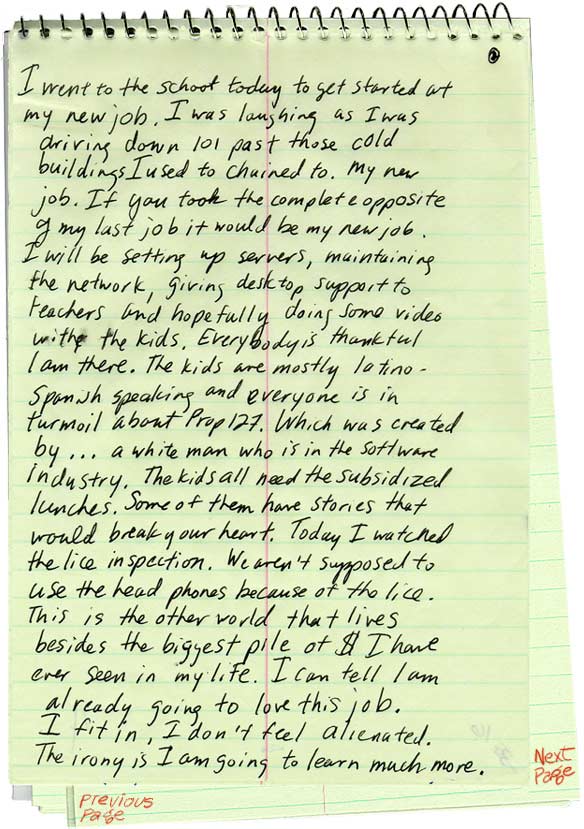 2
I went to the school today to get started at
my new job. I was laughing as I was
driving down 101 past those cold
buildings I used to chained to. My new
job. If you took the complete opposite
of my last job it would be my new job.
I will be setting up servers, maintaining
the network, giving desktop support to
teachers and hopefully doing some video
with the kids. Everybody is thankful
I am there. The kids are mostly latino-
Spanish speaking and everyone is in
turmoil about Prop 127. Which was created
by... a white man who is in the software
industry. The kids all need the subsidized
lunches. Some of them have stories that
would break your heart. Today I watched
the lice inspection. We aren't supposed to
use the head phones because of the lice.
This is the other world that lives
besides the biggest pile of $ I have
ever seen in my life. I can tell I am
already going to love this job.
I fit in, I don't feel alienated.
The irony is I am going to learn much more.
Next
Page
Previous
Page